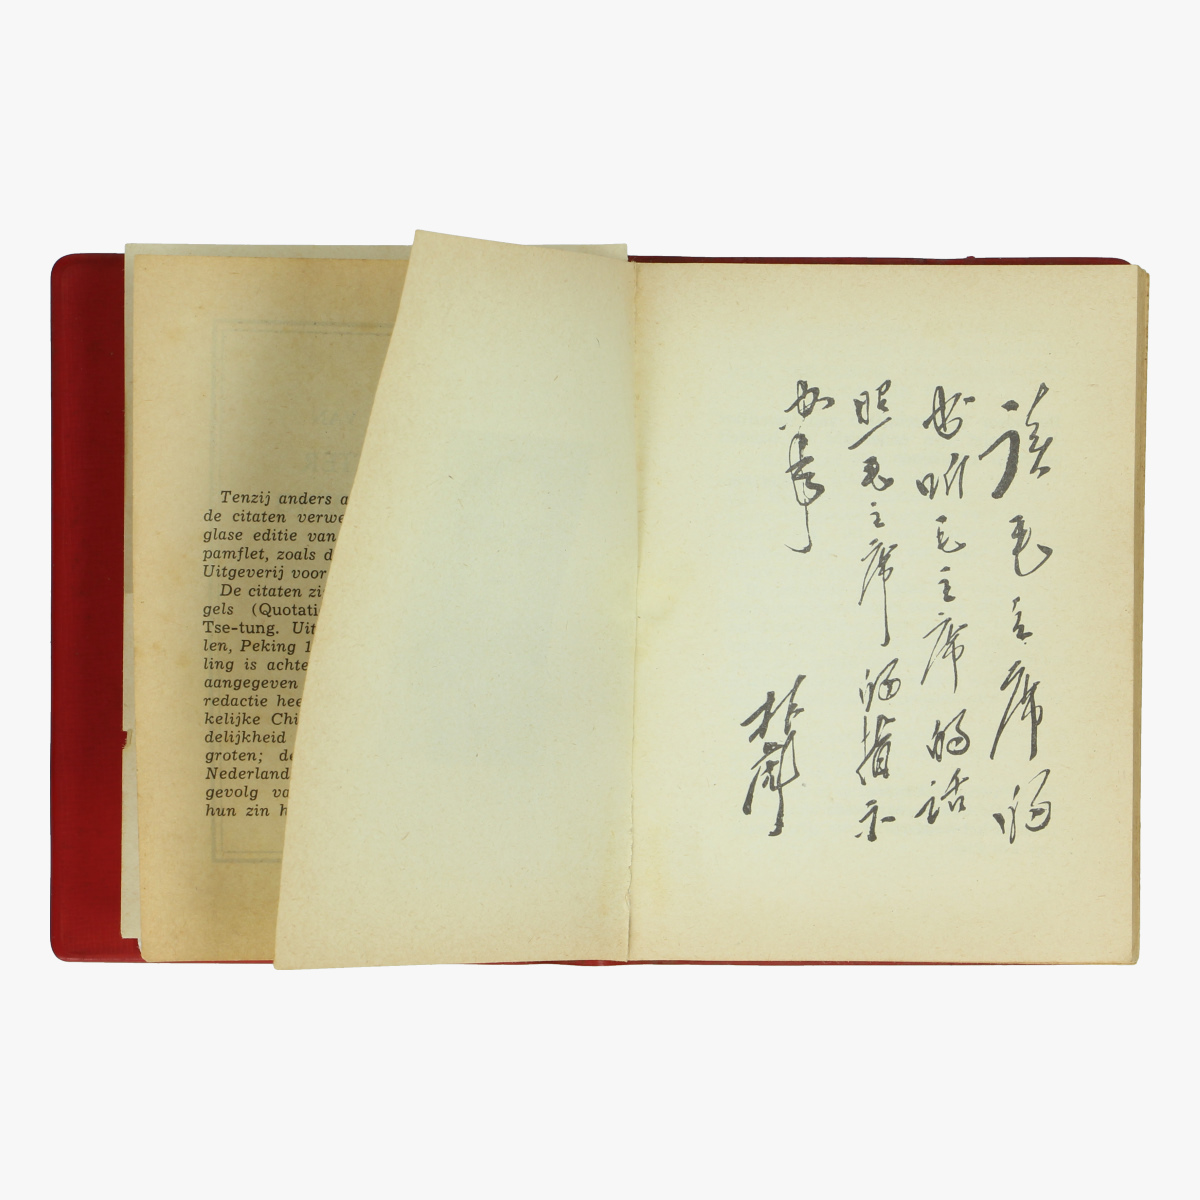 Tenzij anders a
de citaten verwe
glase editie van
pamflet, zoals d
Uitgeverij voor
De citaten zi
gels (Quotati
Tse-tung. Uit
len, Peking 1
ling is achte
aangegeven
redactie hee
kelijke Chi
delijkheid
groten; de
Nederland
gevolg va
hun zin h
读毛主席的
书听毛主席的话
照毛主席的指示
办事
林彪